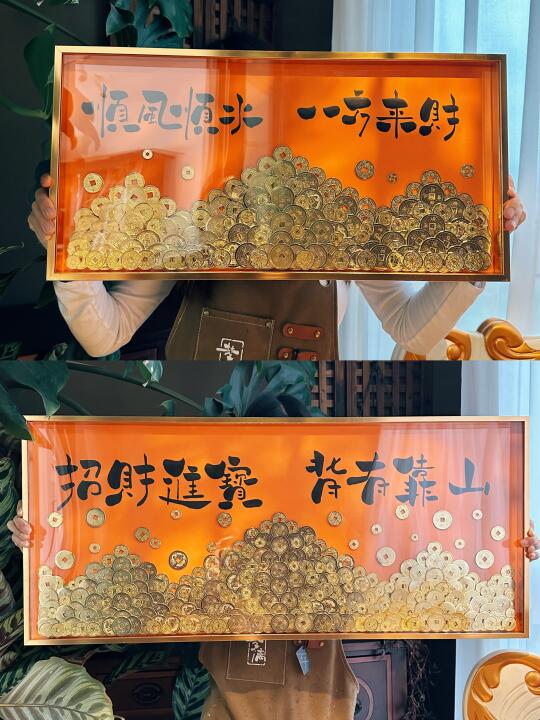 順風順水 八方来財
招財進寶 背有靠山